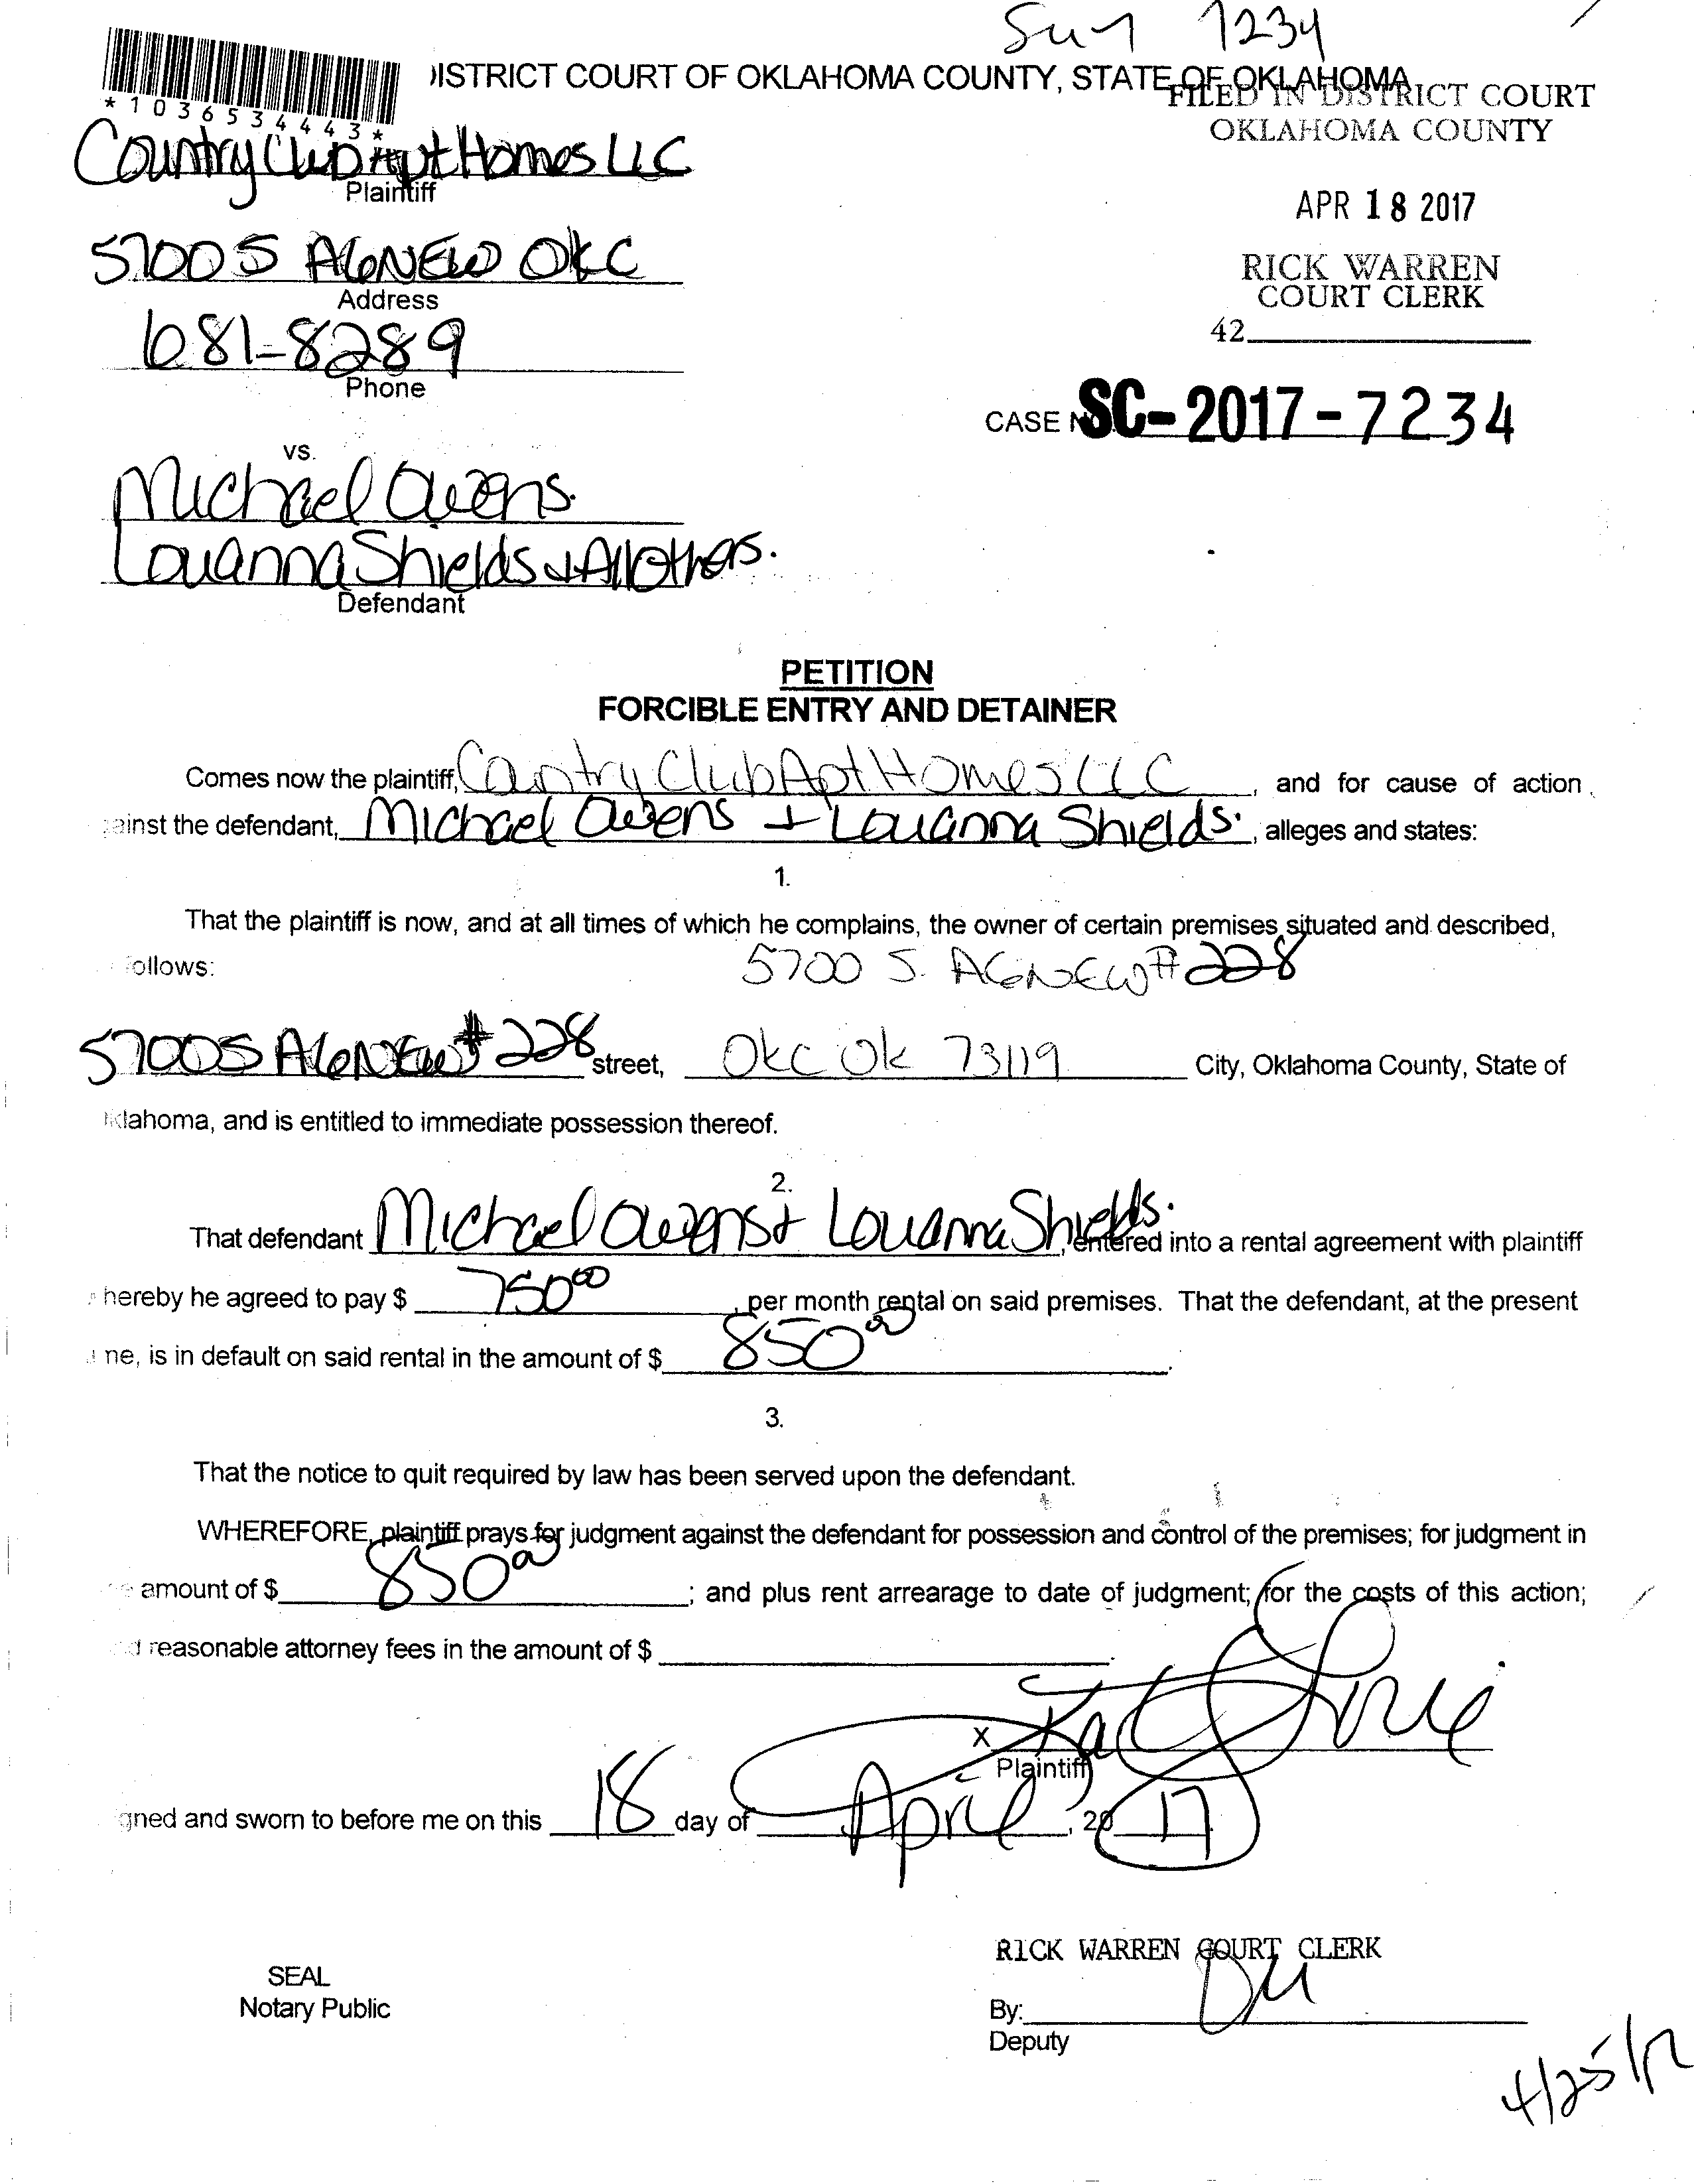 7234
DISTRICT COURT OF OKLAHOMA COUNTY, STATE OF OKLAHOMA
FILED IN DISTRICT COURT
OKLAHOMA COUNTY
*1036534443*
Country Club Apt Homes LLC
Plaintiff
APR 18 2017
5700 S AGNEW OKC
Address
RICK WARREN
COURT CLERK
42
681-8289
Phone
CASE NO. SC-2017-7234
vs.
Michael Owens.
Louanna Shields + All others.
Defendant
PETITION
FORCIBLE ENTRY AND DETAINER
Comes now the plaintiff, Country Club Apt Homes LLC, and for cause of action
ainst the defendant, Michael Owens + Louanna Shields., alleges and states:
1.
That the plaintiff is now, and at all times of which he complains, the owner of certain premises situated and described,
ollows: 5700 S. AGNEW # 228
5700 S AGNEW # 228 street, OKC OK 73119 City, Oklahoma County, State of
klahoma, and is entitled to immediate possession thereof.
2.
That defendant Michael Owens + Louanna Shields., entered into a rental agreement with plaintiff
hereby he agreed to pay $ 750 00, per month rental on said premises. That the defendant, at the present
me, is in default on said rental in the amount of $ 850 00.
3.
That the notice to quit required by law has been served upon the defendant.
WHEREFORE, plaintiff prays for judgment against the defendant for possession and control of the premises; for judgment in
amount of $ 850 00; and plus rent arrearage to date of judgment; for the costs of this action;
d reasonable attorney fees in the amount of $
X
Plaintiff
gned and sworn to before me on this 18 day of April, 20 17
RICK WARREN COURT CLERK
SEAL
Notary Public
By:
Deputy
4/25/17